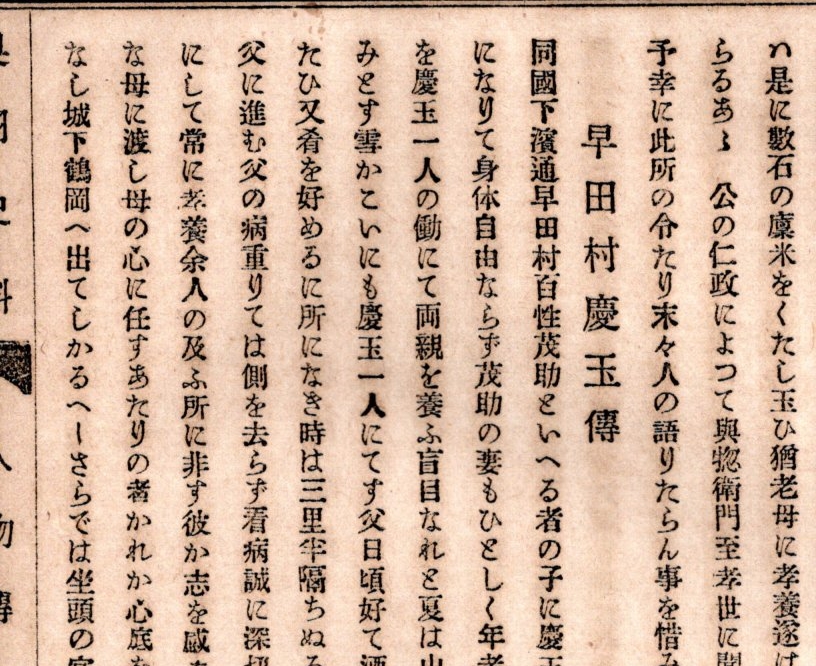 ハ是に數石の廩米をくたし玉ひ猶老母に孝養遂
らるあゝ　公の仁政によつて與惣衛門至孝世に聞
予幸に此所の令たり末々人の語りたらん事を惜み
早田村慶玉傳
同國下濱通早田村百性茂助といへる者の子に慶玉
になりて身体自由ならず茂助の妻もひとしく年老
を慶玉一人の働にて両親を養ふ盲目なれと夏は山
みとす雪かこいにも慶玉一人にてす父日頃好て酒
たひ又肴を好めるに所になき時は三里半隔ちぬる
父に進む父の病重りては側を去らず看病誠に深切
にして常に孝養余人の及ふ所に非す彼か志を感
な母に渡し母の心に任すあたりの者かれか心底を
なし城下鶴岡へ出てしかるへしさらでは坐頭の官
史料
人物傳